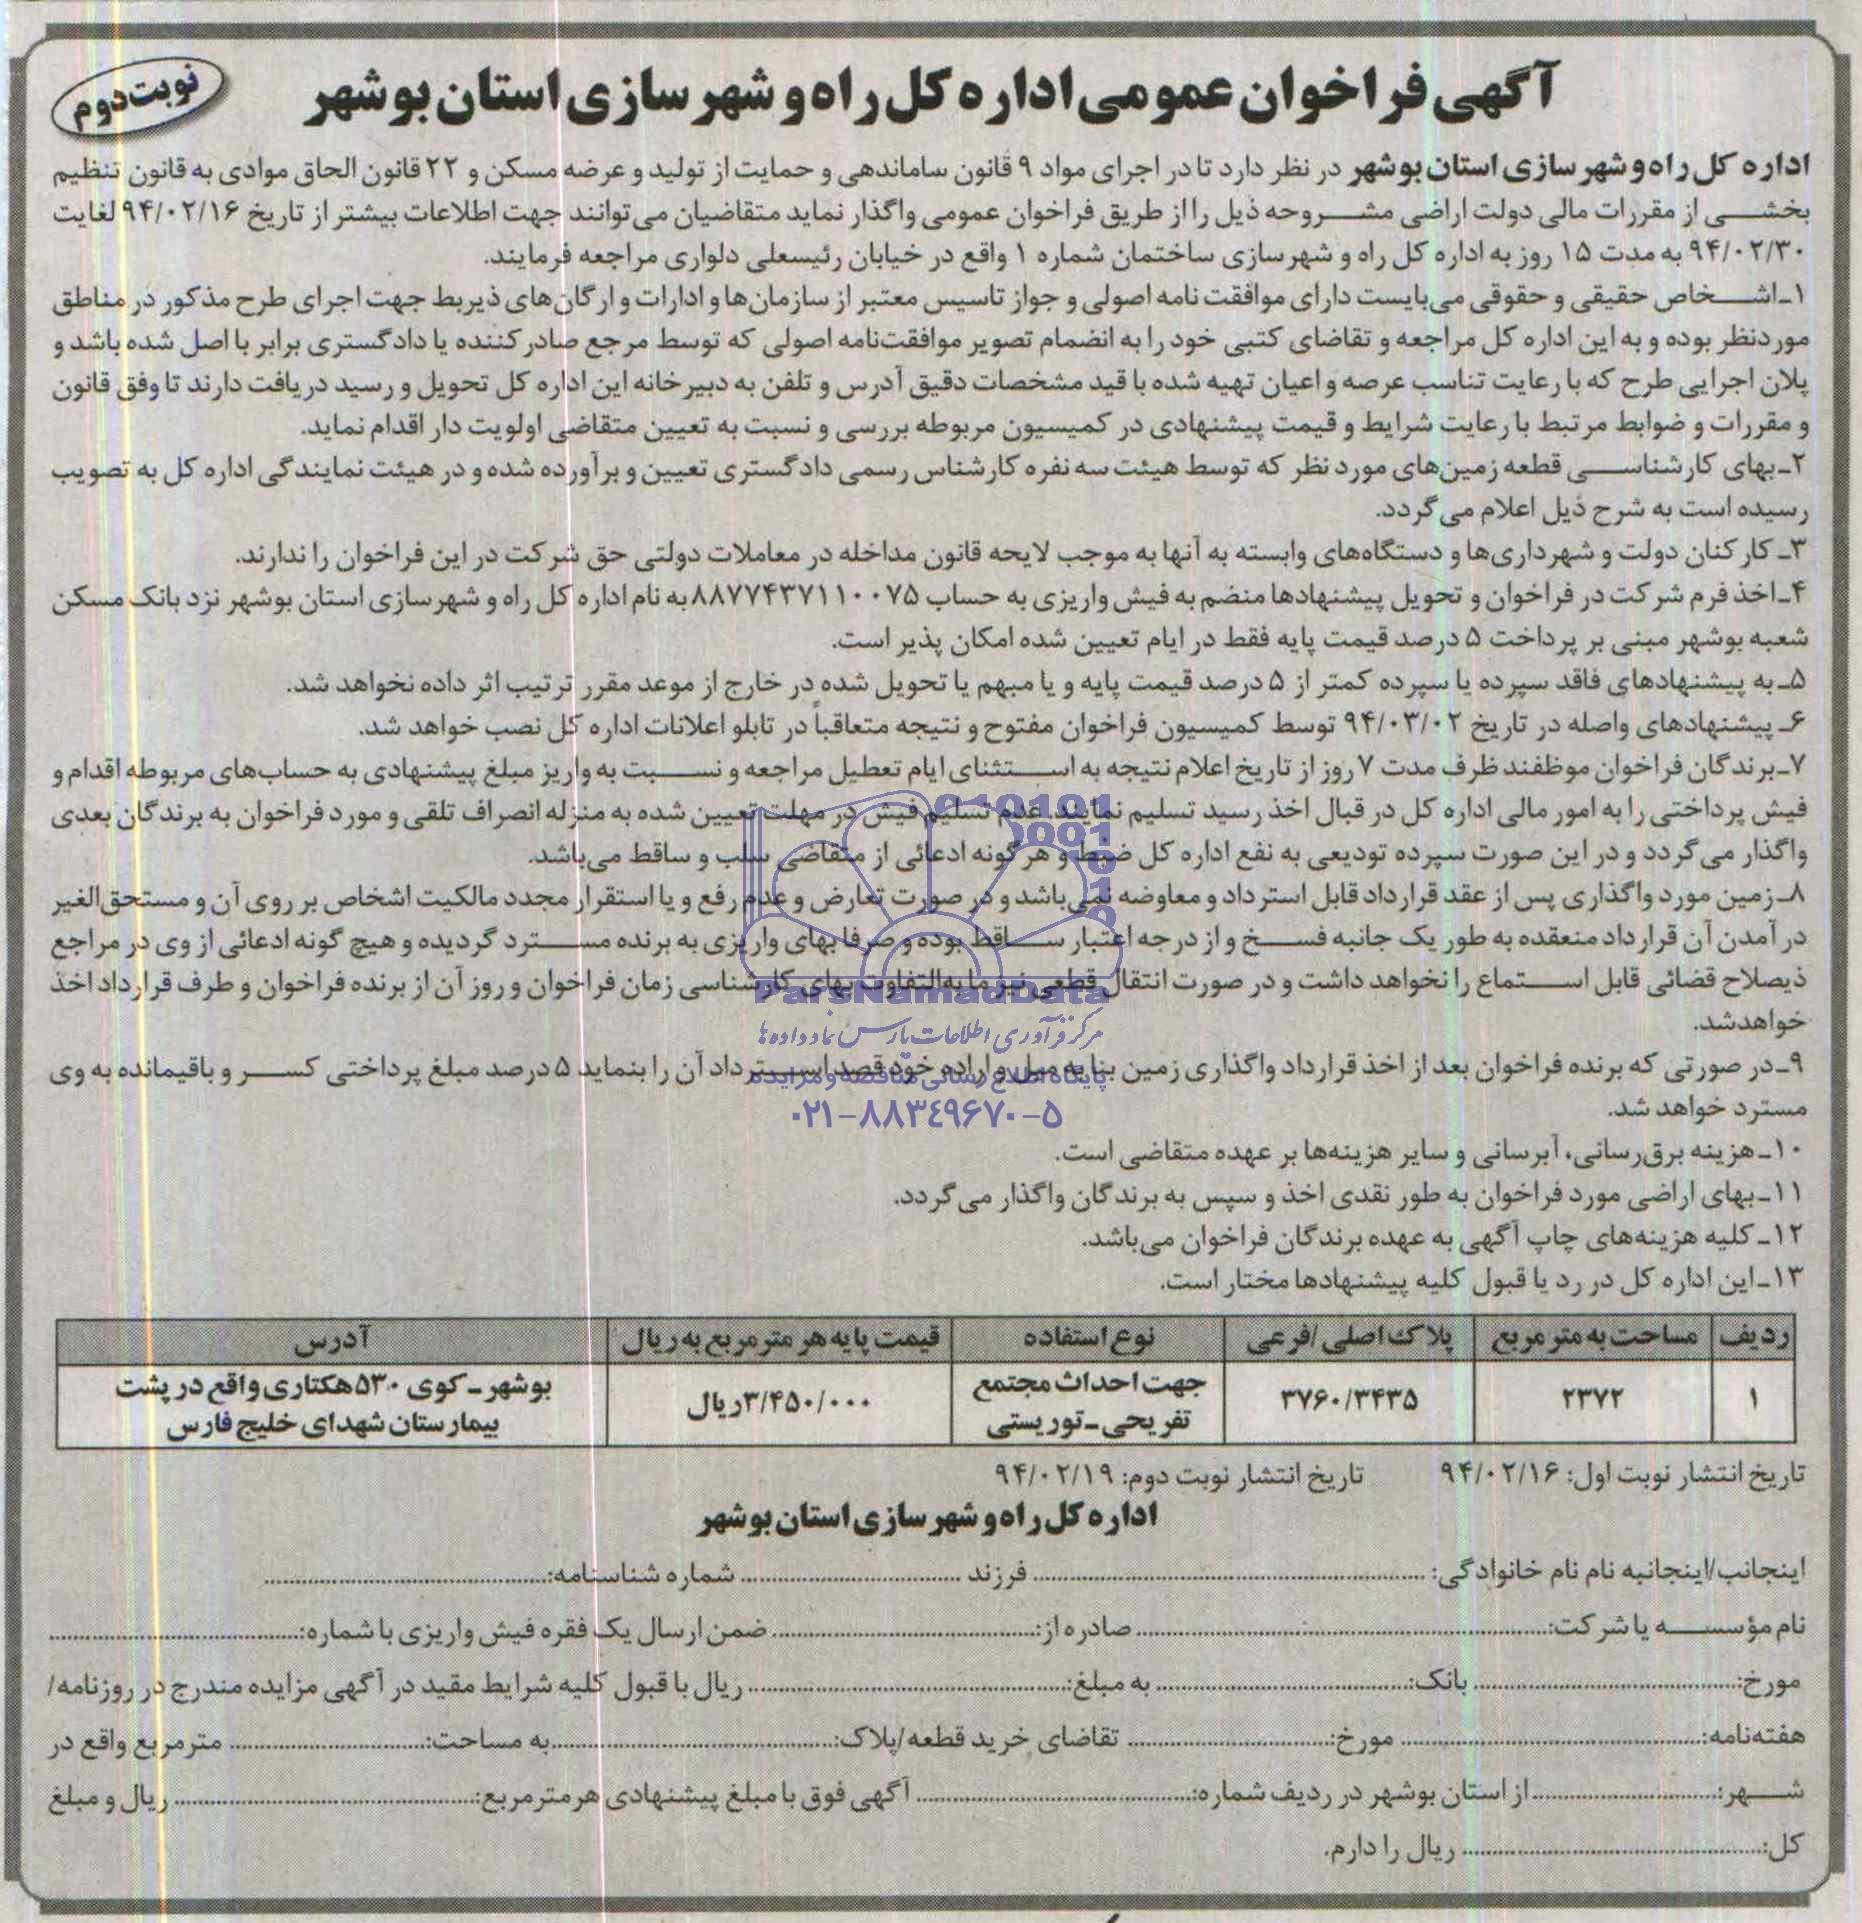 آگهی فراخوان عمومی اداره کل راه و شهرسازی استان بوشهر
نوبت دوم
اداره کل راه و شهرسازی استان بوشهر در نظر دارد تا در اجرای مواد ۹ قانون ساماندهی و حمایت از تولید و عرضه مسکن و ۲۲ قانون الحاق موادی به قانون تنظیم
بخشی از مقررات مالی دولت اراضی مشروحه ذیل را از طریق فراخوان عمومی واگذار نماید متقاضیان می‌توانند جهت اطلاعات بیشتر از تاریخ ۹۴/۰۲/۱۶ لغایت
۹۴/۰۲/۳۰ به مدت ۱۵ روز به اداره کل راه و شهرسازی ساختمان شماره ۱ واقع در خیابان رئیسعلی دلواری مراجعه فرمایند.
۱ـ اشخاص حقیقی و حقوقی می‌بایست دارای موافقت نامه اصولی و جواز تاسیس معتبر از سازمان‌ها و ادارات و ارگان‌های ذیربط جهت اجرای طرح مذکور در مناطق
موردنظر بوده و به این اداره کل مراجعه و تقاضای کتبی خود را به انضمام تصویر موافقت‌نامه اصولی که توسط مرجع صادرکننده یا دادگستری برابر با اصل شده باشد و
پلان اجرایی طرح که با رعایت تناسب عرصه و اعیان تهیه شده با قید مشخصات دقیق آدرس و تلفن به دبیرخانه این اداره کل تحویل و رسید دریافت دارند تا وفق قانون
و مقررات و ضوابط مرتبط با رعایت شرایط و قیمت پیشنهادی در کمیسیون مربوطه بررسی و نسبت به تعیین متقاضی اولویت دار اقدام نماید.
۲ـ بهای کارشناسی قطعه زمین‌های مورد نظر که توسط هیئت سه نفره کارشناس رسمی دادگستری تعیین و برآورده شده و در هیئت نمایندگی اداره کل به تصویب
رسیده است به شرح ذیل اعلام می‌گردد.
۳ـ کارکنان دولت و شهرداری‌ها و دستگاه‌های وابسته به آنها به موجب لایحه قانون مداخله در معاملات دولتی حق شرکت در این فراخوان را ندارند.
۴ـ اخذ فرم شرکت در فراخوان و تحویل پیشنهادها منضم به فیش واریزی به حساب ۸۸۷۷۴۳۷۱۱۰۰۷۵ به نام اداره کل راه و شهرسازی استان بوشهر نزد بانک مسکن
شعبه بوشهر مبنی بر پرداخت ۵ درصد قیمت پایه فقط در ایام تعیین شده امکان پذیر است.
۵ـ به پیشنهادهای فاقد سپرده یا سپرده کمتر از ۵ درصد قیمت پایه و یا مبهم یا تحویل شده در خارج از موعد مقرر ترتیب اثر داده نخواهد شد.
۶ـ پیشنهادهای واصله در تاریخ ۹۴/۰۳/۰۲ توسط کمیسیون فراخوان مفتوح و نتیجه متعاقباً در تابلو اعلانات اداره کل نصب خواهد شد.
۷ـ برندگان فراخوان موظفند ظرف مدت ۷ روز از تاریخ اعلام نتیجه به استثنای ایام تعطیل مراجعه و نسبت به واریز مبلغ پیشنهادی به حساب‌های مربوطه اقدام و
فیش پرداختی را به امور مالی اداره کل در قبال اخذ رسید تسلیم نمایند. عدم تسلیم فیش در مهلت تعیین شده به منزله انصراف تلقی و مورد فراخوان به برندگان بعدی
واگذار می‌گردد و در این صورت سپرده تودیعی به نفع اداره کل ضبط و هرگونه ادعائی از متقاضی سلب و ساقط می‌باشد.
۸ـ زمین مورد واگذاری پس از عقد قرارداد قابل استرداد و معاوضه نمی‌باشد و در صورت تعارض و عدم رفع و یا استقرار مجدد مالکیت اشخاص بر روی آن و مستحق‌الغیر
در آمدن آن قرارداد منعقده به طور یک جانبه فسخ و از درجه اعتبار ساقط بوده و صرفا بهای واریزی به برنده مسترد گردیده و هیچ گونه ادعائی از وی در مراجع
ذیصلاح قضائی قابل استماع را نخواهد داشت و در صورت انتقال قطعی نیز مابه‌التفاوت بهای کارشناسی زمان فراخوان و روز آن از برنده فراخوان و طرف قرارداد اخذ
خواهدشد.
۹ـ در صورتی که برنده فراخوان بعد از اخذ قرارداد واگذاری زمین بنا به میل و اراده خود قصد استرداد آن را بنماید ۵ درصد مبلغ پرداختی کسر و باقیمانده به وی
مسترد خواهد شد.
۱۰ـ هزینه برق‌رسانی، آبرسانی و سایر هزینه‌ها بر عهده متقاضی است.
۱۱ـ بهای اراضی مورد فراخوان به طور نقدی اخذ و سپس به برندگان واگذار می‌گردد.
۱۲ـ کلیه هزینه‌های چاپ آگهی به عهده برندگان فراخوان می‌باشد.
۱۳ـ این اداره کل در رد یا قبول کلیه پیشنهادها مختار است.
ParsNamadData
مرکز فرآوری اطلاعات پارس نماد داده‌ها
پایگاه اطلاع رسانی مناقصه و مزایده
۰۲۱-۸۸۳۴۹۶۷۰-۵
ردیف مساحت به متر مربع پلاک اصلی/فرعی نوع استفاده قیمت پایه هر متر مربع به ریال آدرس
۱ ۲۳۷۲ ۳۷۶۰/۳۴۳۵ جهت احداث مجتمع تفریحی ـ توریستی ۳/۴۵۰/۰۰۰ ریال بوشهر ـ کوی ۵۳۰ هکتاری واقع در پشت بیمارستان شهدای خلیج فارس
تاریخ انتشار نوبت اول: ۹۴/۰۲/۱۶ تاریخ انتشار نوبت دوم: ۹۴/۰۲/۱۹
اداره کل راه و شهرسازی استان بوشهر
اینجانب/اینجانبه نام نام خانوادگی: ........ فرزند ........ شماره شناسنامه: ........
نام مؤسسه یا شرکت: ........ صادره از: ........ ضمن ارسال یک فقره فیش واریزی با شماره: ........
مورخ: ........ بانک: ........ به مبلغ: ........ ریال با قبول کلیه شرایط مقید در آگهی مزایده مندرج در روزنامه/
هفته‌نامه: ........ مورخ: ........ تقاضای خرید قطعه/پلاک: ........ به مساحت: ........ مترمربع واقع در
شهر: ........ از استان بوشهر در ردیف شماره: ........ آگهی فوق با مبلغ پیشنهادی هر مترمربع: ........ ریال و مبلغ
کل: ........ ریال را دارم.